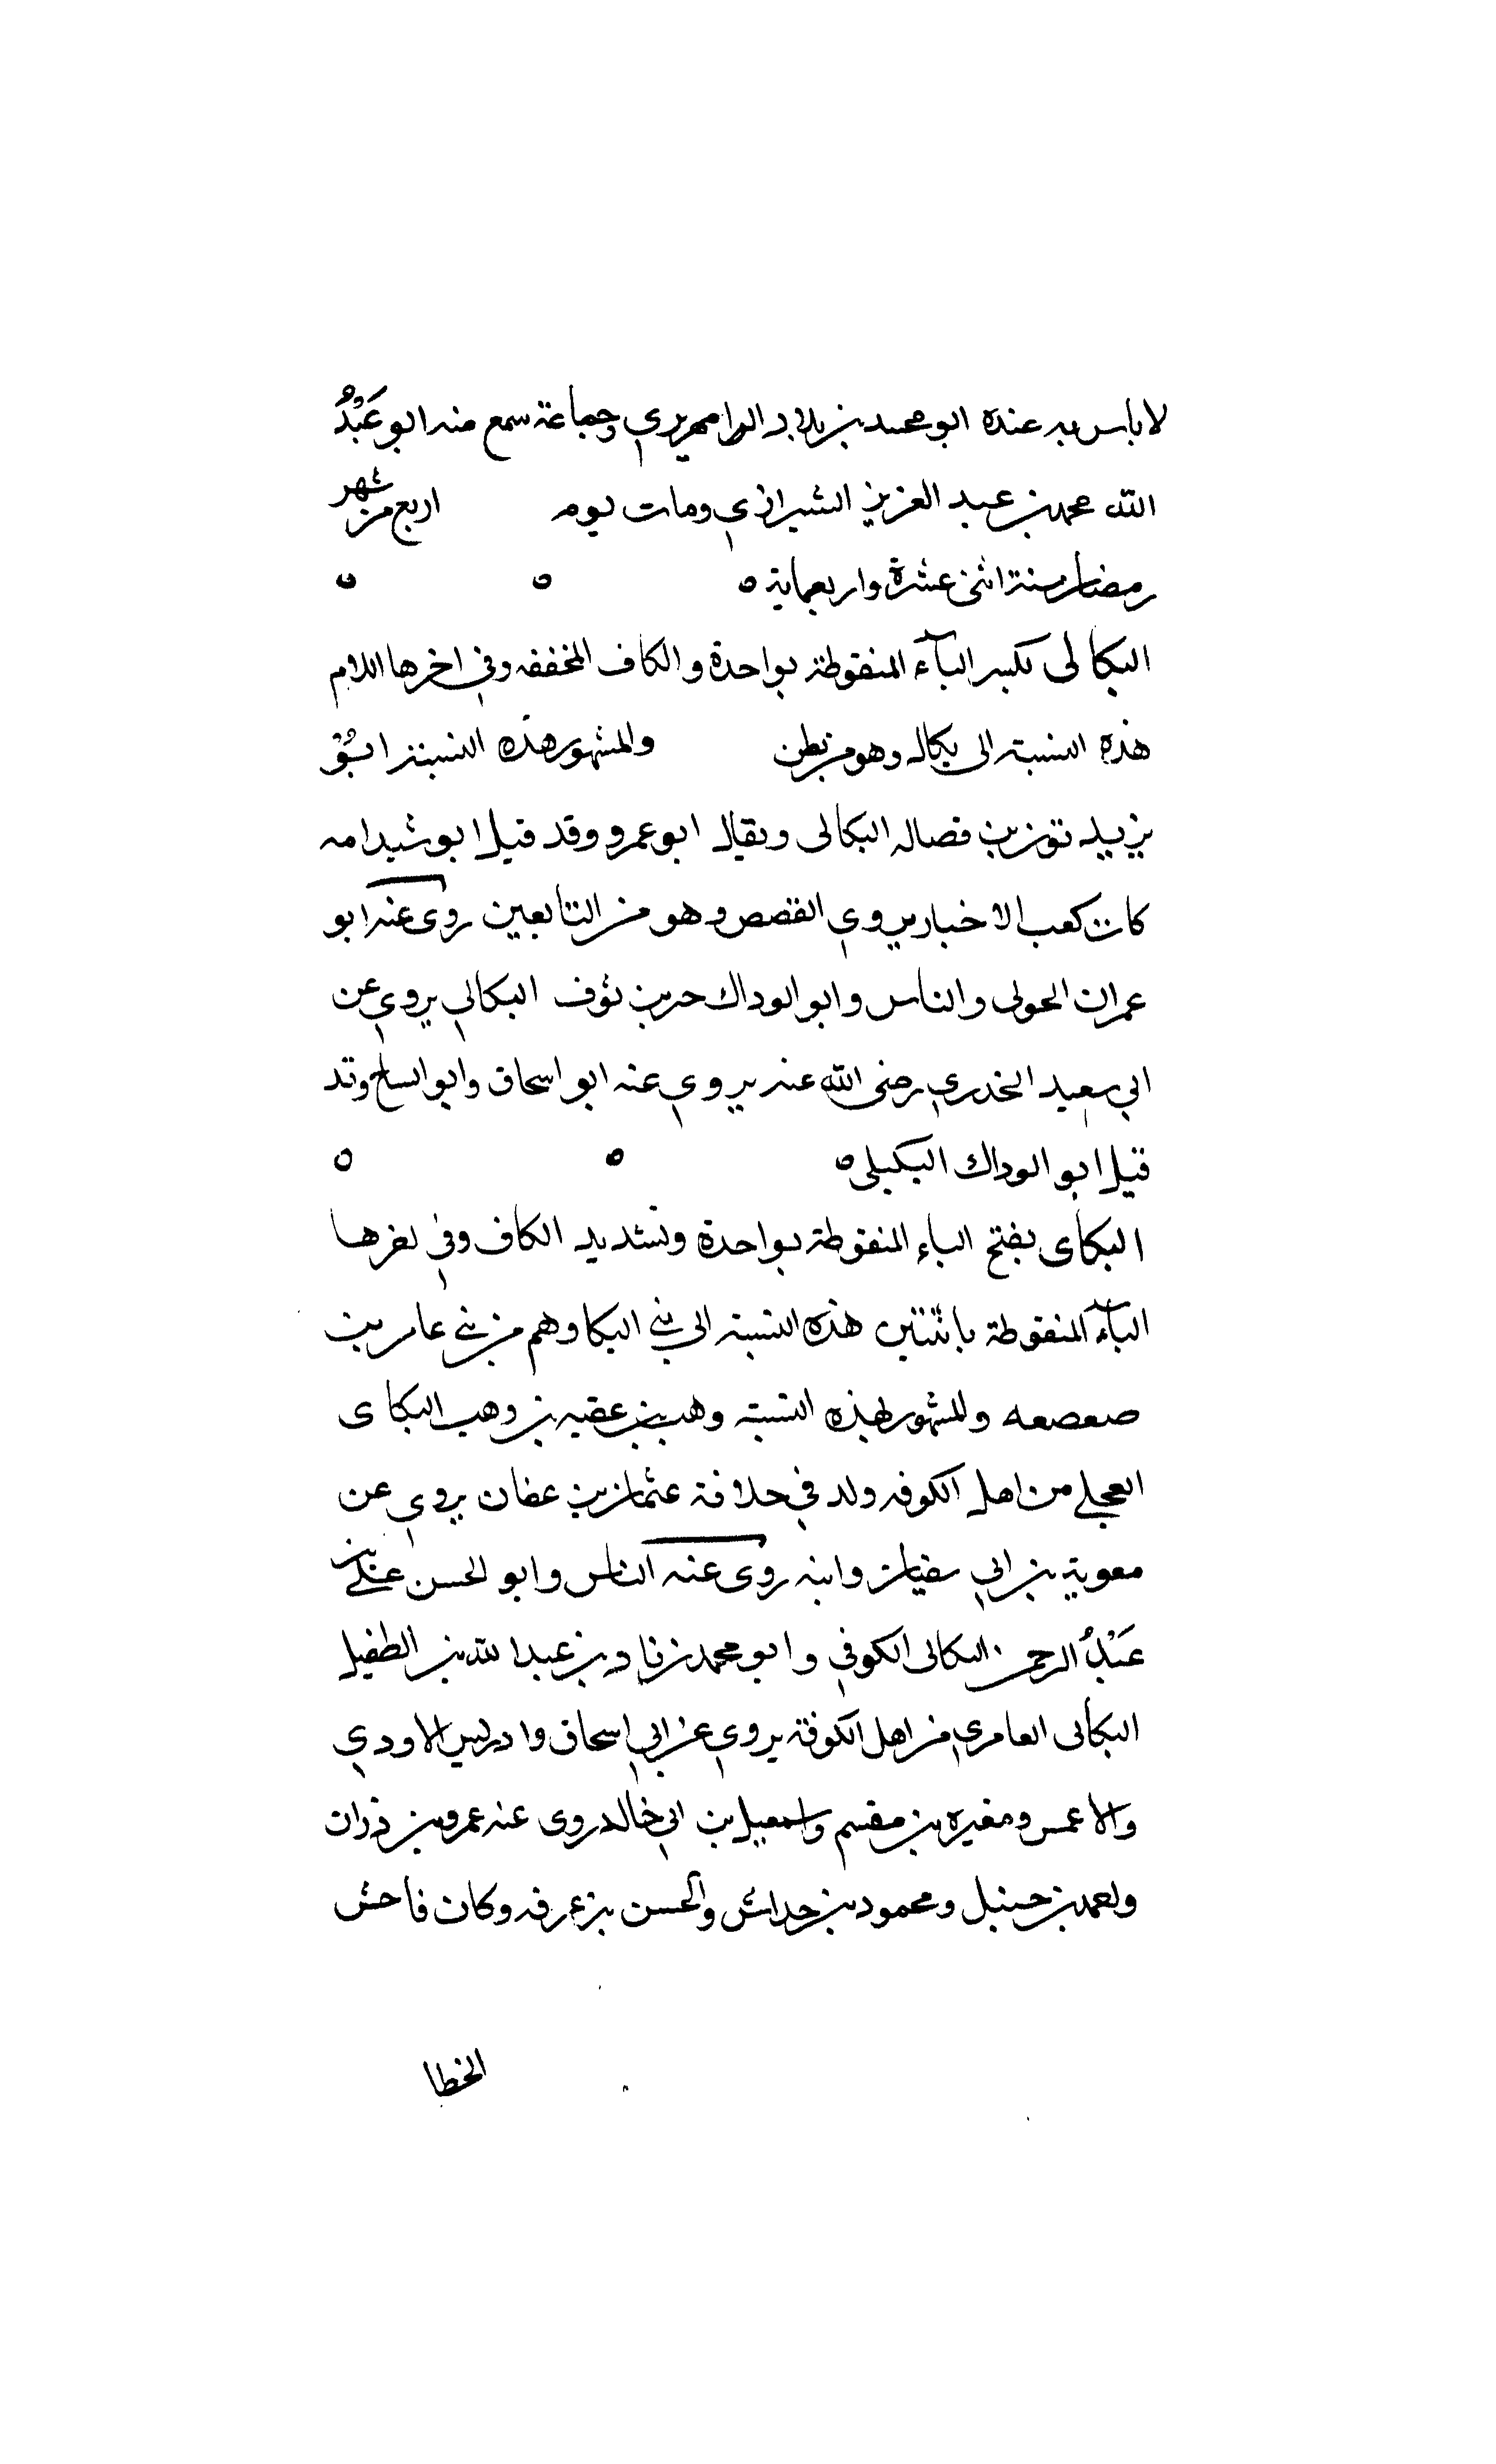 لا باس به عنده ابو محمد بن بلاد الرامهريري وجماعة سمع منه ابو عَبْدُ
الله محمد بن عبد العزيز الشيرازي ومات يوم اربع من شهر
رمضان سنة اثنى عشرة واربعماية ه ه ه
البكالى بكسر البآء المنقوطة بواحدة والكاف المخففه وفي اخرها اللام
هذه النسبة الى بكاله وهو من بطن والمشهور هذه النسبة ابو
يزيد نوف بن فضاله البكالى ويقال ابو عمرو وقد قيل ابو شيد امه
كانت كعب الاخبار يروي القصص وهو من التابعين روى عنه ابو
عمران الحولى والناس وابو الوداك حر بن نوف البكالي يروي عن
ابي سعيد الخدري رضى الله عنه يروي عنه ابو اسحاق وابو الساح وقد
قيل ابو الوداك البكيلى ه ه ه
البكاى بفتح الباء المنقوطة بواحدة وتشديد الكاف وفي اخرها
اليآء المنقوطة باثنتين هذه النسبة الى بني البكا وهم من بني عامر بن
صعصعه والمشهور بهذه النسبة وهب بن عقبه بن وهب البكاى
العجلي من اهل الكوفه ولد في خلافة عثمان بن عفان يروي عن
معوية بن ابي سفيان وابنه روى عنه الناس وابو الحسن علي بن
عَبْدُ الرحمن البكالى الكوفي وابو محمد زياد بن عبد الله بن الطفيل
البكالى العامري من اهل الكوفة يروي عن ابي اسحاق وادريس الاودي
والاعمس ومغيره بن مقسم واسمعيل بن ابي خالد روى عنه عمرو بن زران
واحمد بن حنبل ومحمود بن خداش والحسن بن عرفه وكان فاحش
الخطا